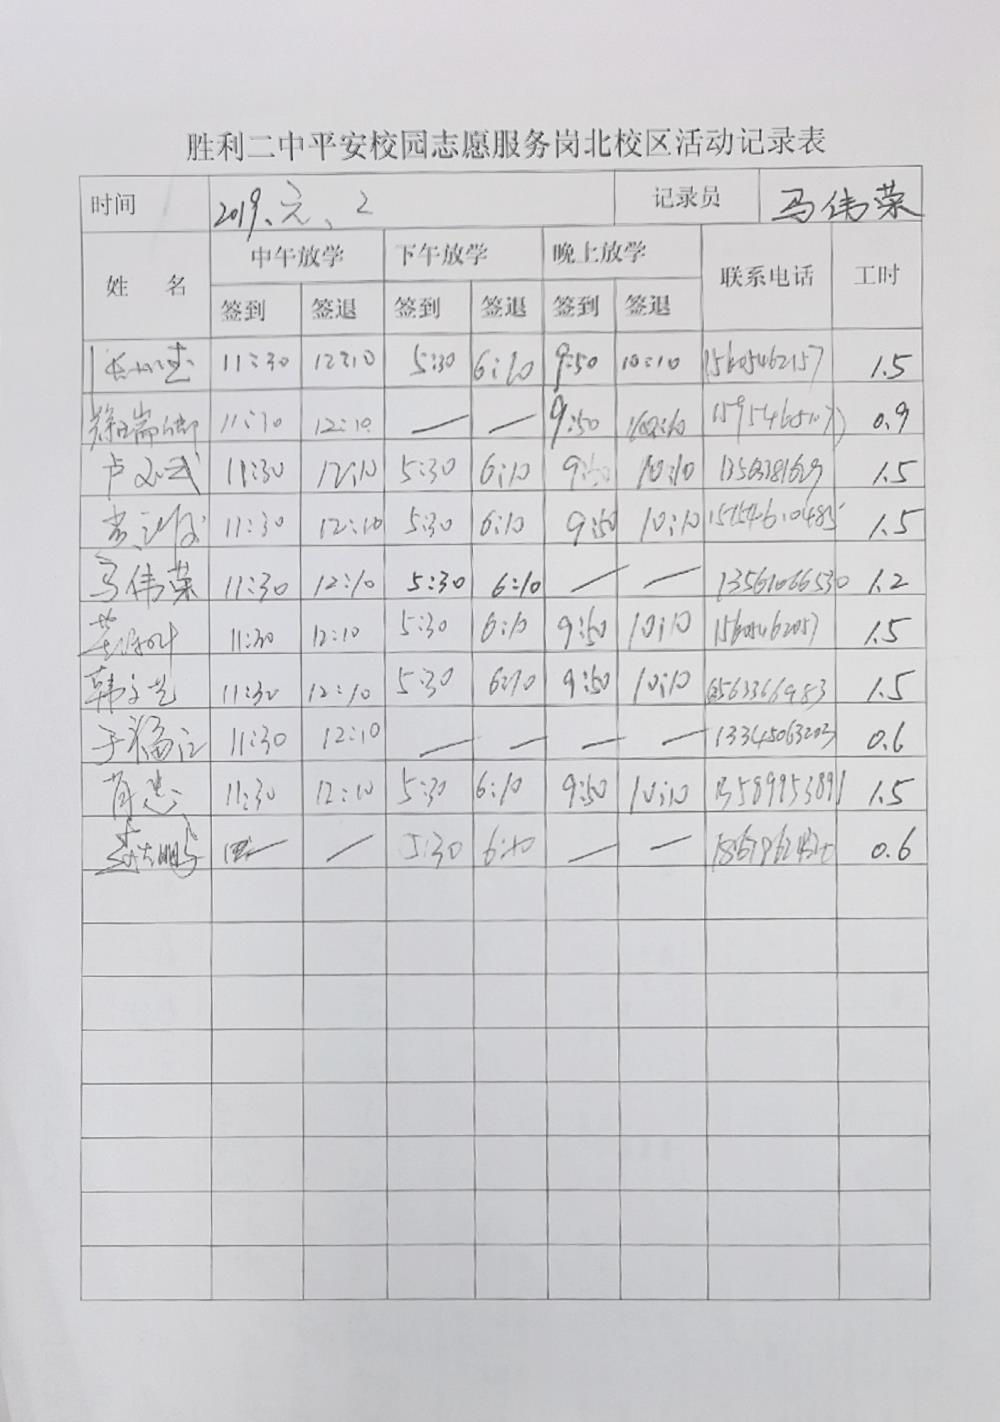 胜利二中平安校园志愿服务岗北校区活动记录表
时间 2019、元、2 记录员 马伟荣
姓 名 中午放学 下午放学 晚上放学 联系电话 工时
签到 签退 签到 签退 签到 签退
11:30 12:10 5:30 6:10 9:50 10:10 15605462157 1.5
11:30 12:10 — — 9:50 0.9
11:30 12:10 5:30 6:10 9:50 10:10 1.5
11:30 12:10 5:30 6:10 9:50 10:10 1.5
马伟荣 11:30 12:10 5:30 6:10 — — 13561066530 1.2
11:30 12:10 5:30 6:10 9:50 10:10 15605462057 1.5
11:30 12:10 5:30 6:10 9:50 10:10 1.5
于福江 11:30 12:10 — — — — 13345063203 0.6
肖忠 11:30 12:10 5:30 6:10 9:50 10:10 13589953891 1.5
— — 5:30 6:10 — — 0.6